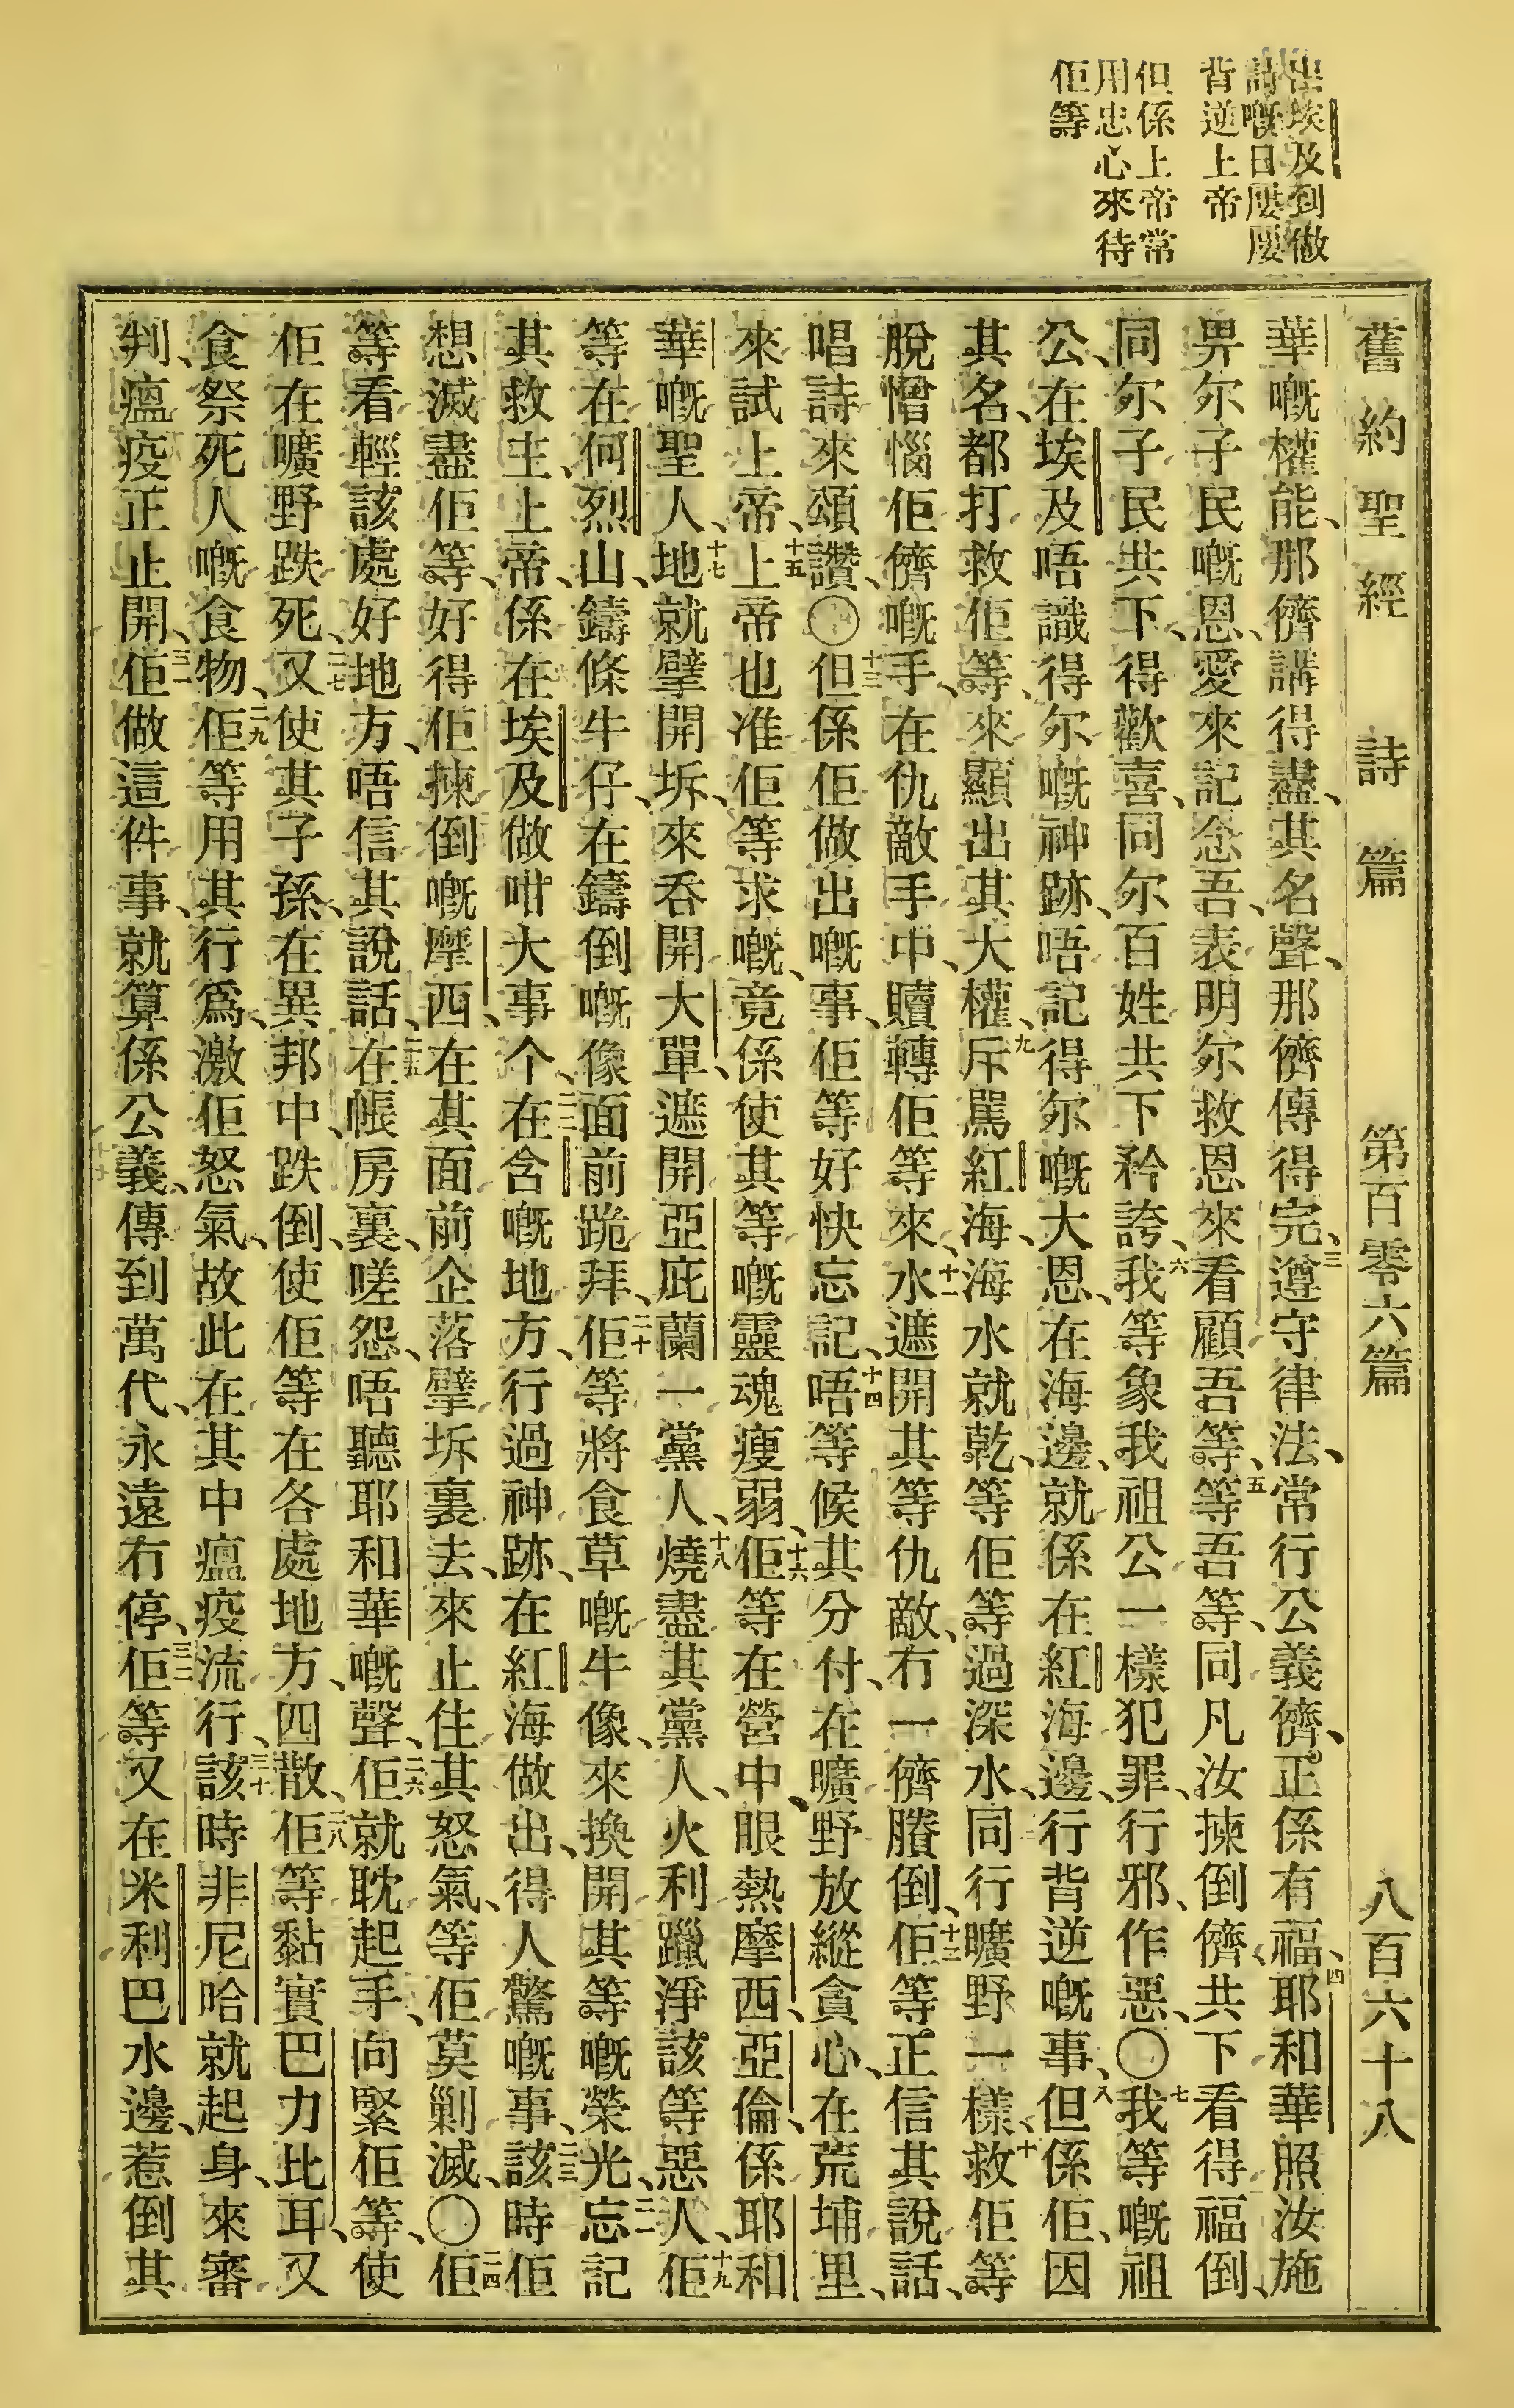 出埃及到做
詩嘅日屢屢
背逆上帝
但係上帝常
用忠心來待
佢等
舊約聖經 詩篇 第百零六篇 八百六十八
華嘅權能、那儕講得盡、其名聲、那儕傳得完、三遵守律法、常行公義儕、正係有福、四耶和華照汝施
畀尔子民嘅恩愛來記念吾、表明尔救恩來看顧吾等、五等吾等、同凡汝揀倒儕共下看得福倒、
同尔子民共下、得歡喜、同尔百姓共下矜誇、六我等象我祖公一樣犯罪、行邪、作惡、〇七我等嘅祖
公、在埃及唔識得尔嘅神跡、唔記得尔嘅大恩、在海邊、就係在紅海邊、行背逆嘅事、八但係佢、因
其名、都打救佢等、來顯出其大權、九斥罵紅海、海水就乾、等佢等過深水、同行曠野一樣、十救佢等
脫憎惱佢儕嘅手、在仇敵手中、贖轉佢等來、十一水遮開其等仇敵、冇一儕賸倒、十二佢等正信其說話、
唱詩來頌讚、〇十三但係佢做出嘅事、佢等好快忘記、十四唔等候其分付、在曠野放縱貪心、在荒埔里、
來試上帝、十五上帝也准佢等求嘅、竟係使其等嘅靈魂瘦弱、十六佢等在營中、眼熱摩西、亞倫、係耶和
華嘅聖人、十七地就擘開坼、來吞開大單、遮開亞庇蘭一黨人、十八燒盡其黨人、火利躐淨該等惡人、十九佢
等在何烈山、鑄條牛仔、在鑄倒嘅像面前跪拜、二十佢等將食草嘅牛像、來換開其等嘅榮光、二一忘記
其救主、上帝、係在埃及做咁大事个、二二在含嘅地方、行過神跡、在紅海做出、得人驚嘅事、二三該時佢
想滅盡佢等、好得佢揀倒嘅摩西、在其面前企落擘坼裏去、來止住其怒氣、等佢莫剿滅、〇二四佢
等看輕該處好地方、唔信其說話、二五在帳房裏、嗟怨、唔聽耶和華嘅聲、二六佢就耽起手、向緊佢等、使
佢在曠野跌死、二七又使其子孫、在異邦中、跌倒、使佢等在各處地方、四散、二八佢等黏實巴力比耳、又
食祭死人嘅食物、二九佢等用其行爲、激佢怒氣、故此在其中瘟疫流行、三十該時非尼哈就起身、來審
判、瘟疫正止開、三一佢做這件事、就算係公義、傳到萬代、永遠冇停、三二佢等又在米利巴水邊、惹倒其